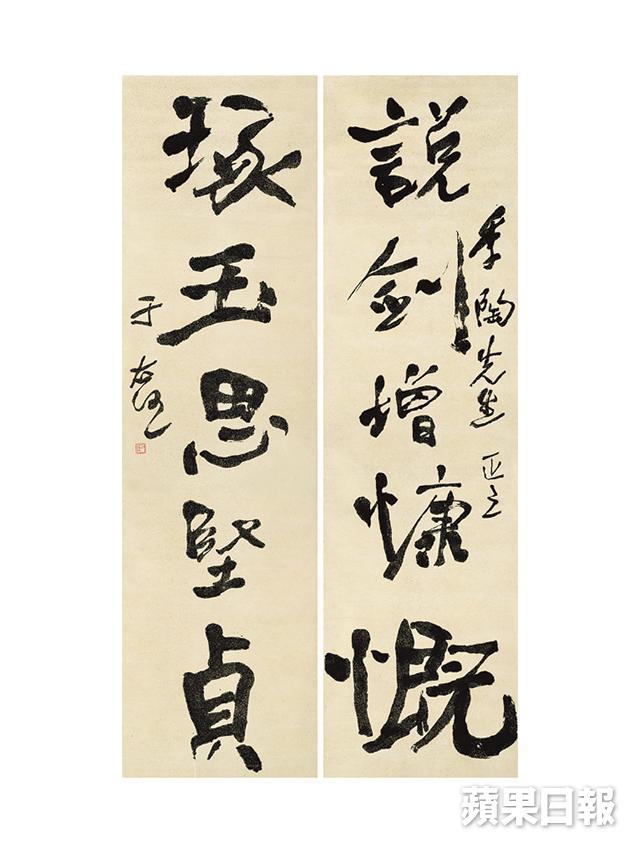 季陶先生 正之
說劍增慷慨
琢玉思堅貞
于右任
蘋果日報